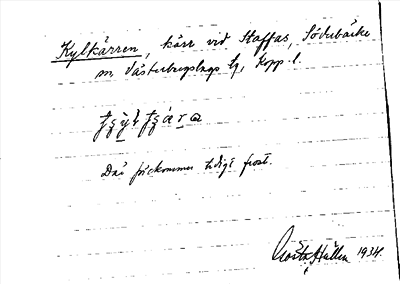 Kylkärren, kärr vid Staffas, Söderbärke
sn Västerbergslags tg, Kopp. l.
Där förekommer tidigt frost.
Gösta Hallén 1934.